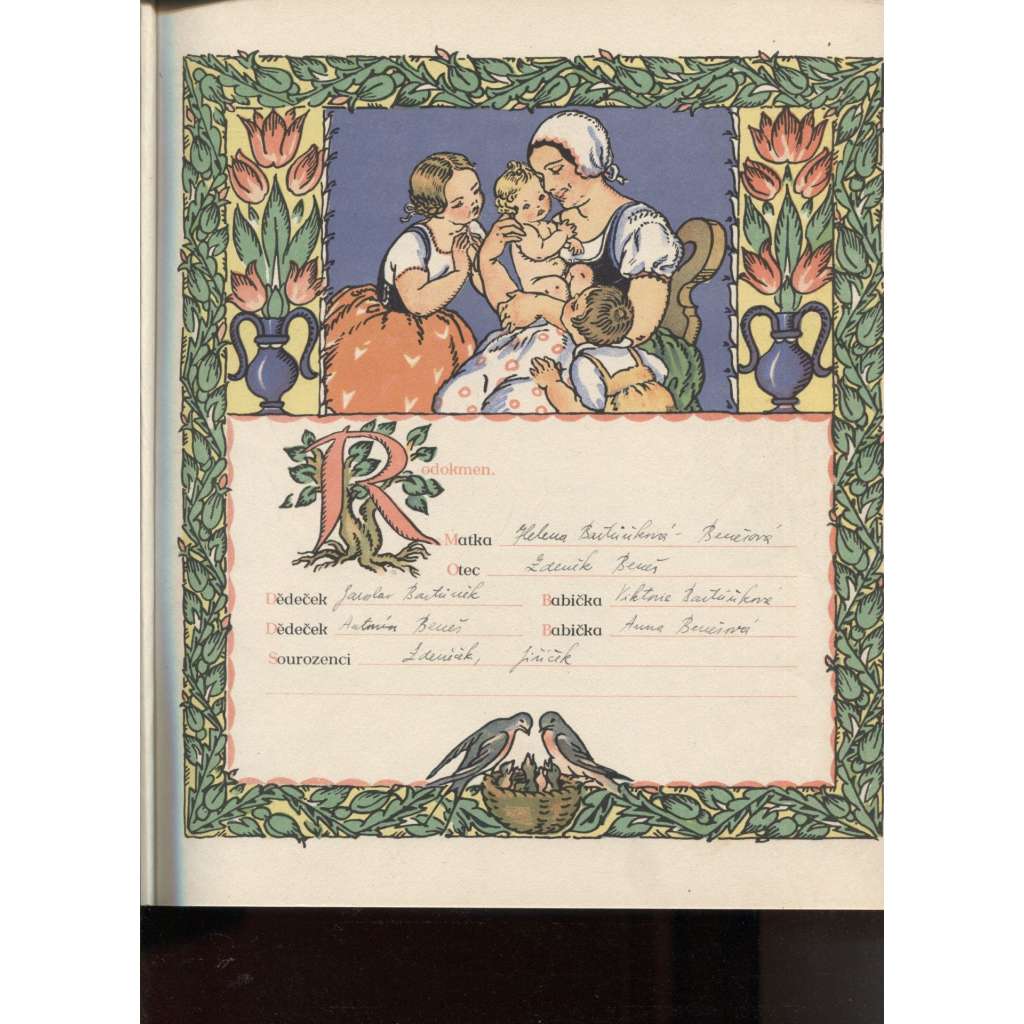 Rodokmen.
Matka Helena Bartůňková - Benešová
Otec Zdeněk Beneš
Dědeček Jaroslav Bartůněk Babička Viktorie Bartůňková
Dědeček Antonín Beneš Babička Anna Benešová
Sourozenci Zdeněček, Jiříček